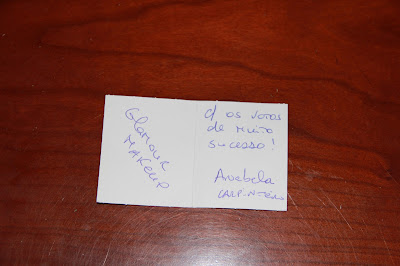 Glamour
Makeup
c/ os votos
de muito
sucesso!
Anabela
CARPINTEIRO